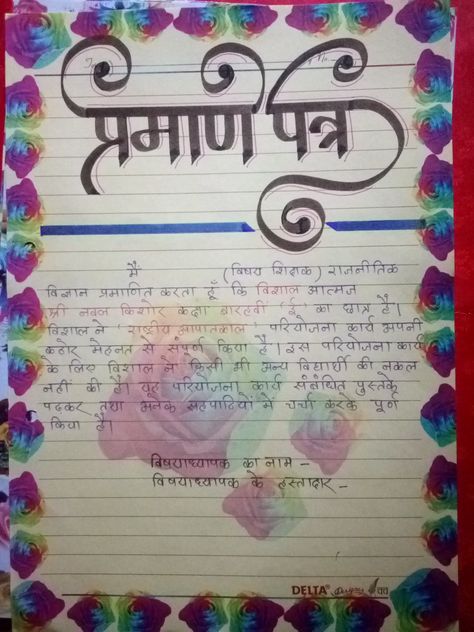 प्रमाण पत्र
मैं (विषय शिक्षक) राजनीतिक
विज्ञान प्रमाणित करता हूँ कि विशाल आत्मज
श्री नवल किशोर कक्षा बारहवीं 'ई' का छात्र है।
विशाल ने 'राष्ट्रीय आपातकाल' परियोजना कार्य अपनी
कठोर मेहनत से संपूर्ण किया है। इस परियोजना कार्य
के लिए विशाल ने किसी भी अन्य विद्यार्थी की नकल
नहीं की है। यह परियोजना कार्य संबंधित पुस्तके
पढ़कर तथा अनेक सहपाठियों में चर्चा करके पूर्ण
किया है।
विषयाध्यापक का नाम -
विषयाध्यापक के हस्ताक्षर -
DELTA